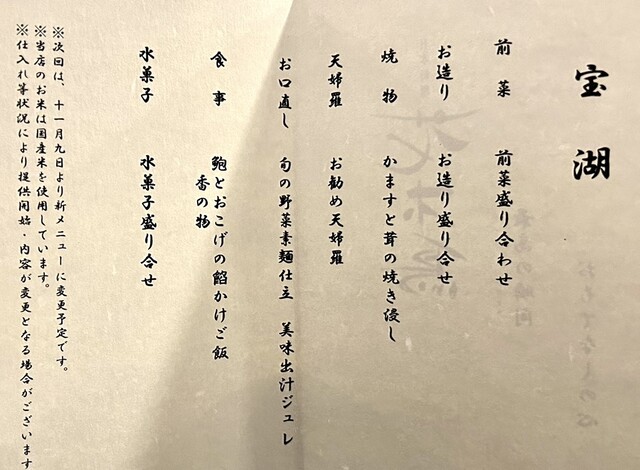 宝湖
前菜 前菜盛り合わせ
お造り お造り盛り合せ
焼物 かますと茸の焼き浸し
天婦羅 お勧め天婦羅
お口直し 旬の野菜素麺仕立 美味出汁ジュレ
食事 鮑とおこげの餡かけご飯
香の物
水菓子 水菓子盛り合せ
※次回は、十一月九日より新メニューに変更予定です。
※当店のお米は国産米を使用しています。
※仕入れ等状況により提供開始・内容が変更となる場合がございます